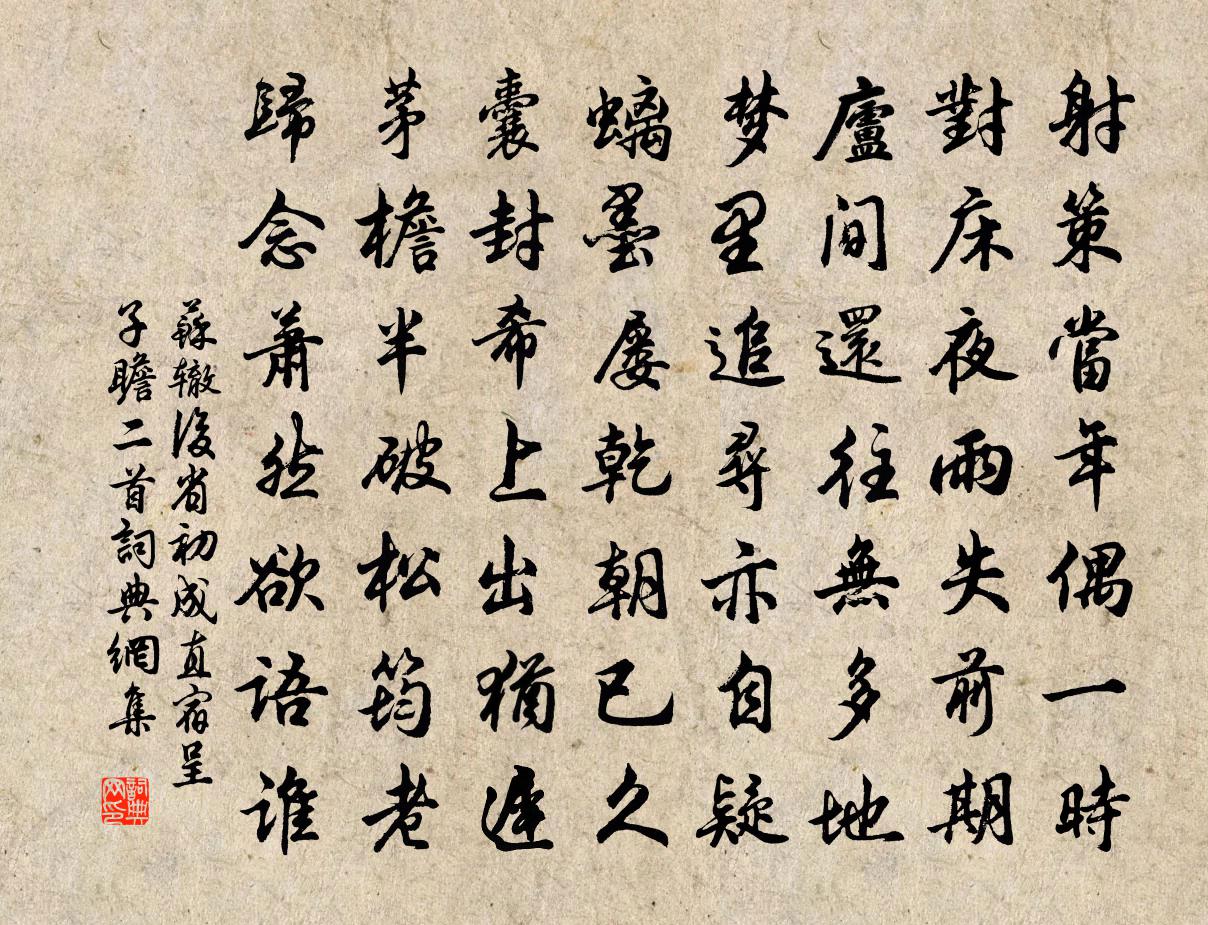 射策當年偶一時
對床夜雨失前期
廬間還往無多地
梦里追尋亦自疑
螭墨屡乾朝已久
囊封希上出猶遲
茅檐半破松筠老
歸念蕭然欲語誰
蘇辙後省初成直宿呈
子瞻二首詞典網集
詞典
网印